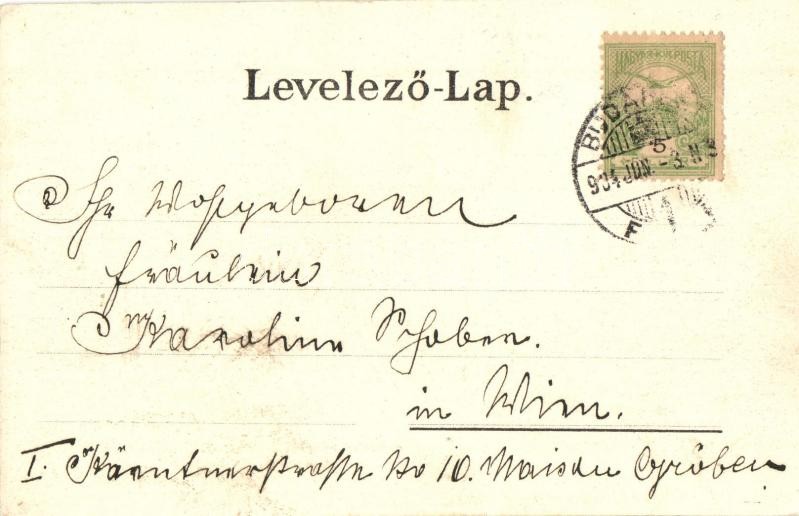 Levelező-Lap.
MAGYAR KIR. POSTA
BUDAP
5
904 JUN. - 3. N
F
Ihr Wohlgeboren
Fräulein
Karoline Schober.
in Wien.
I. Kärntnerstrasse No 10. Maison Gröben